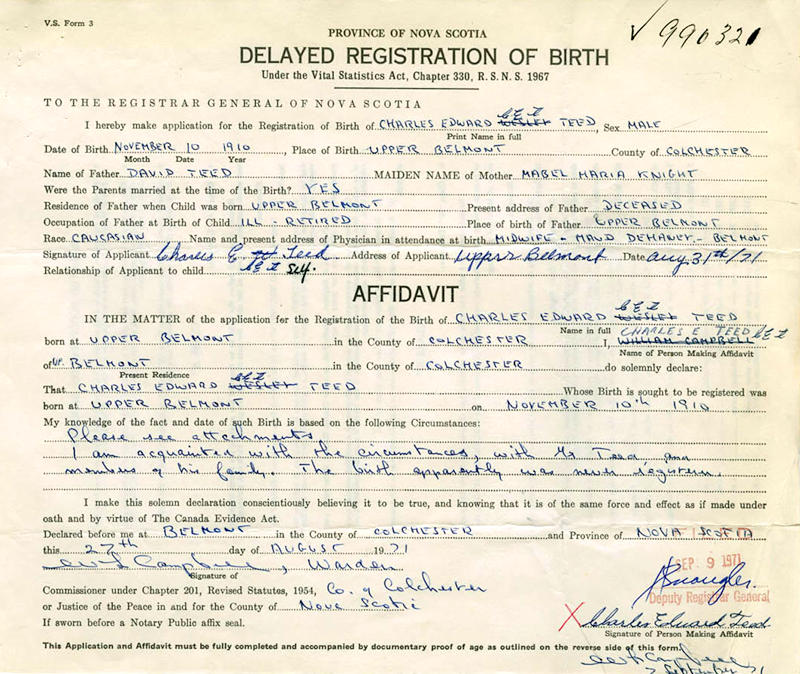 V.S. Form 3
✓ 990321
PROVINCE OF NOVA SCOTIA
DELAYED REGISTRATION OF BIRTH
Under the Vital Statistics Act, Chapter 330, R.S.N.S. 1967
TO THE REGISTRAR GENERAL OF NOVA SCOTIA
I hereby make application for the Registration of Birth of CHARLES EDWARD WESLEY TEED, Sex MALE
Print Name in full
Date of Birth NOVEMBER 10 1910, Place of Birth UPPER BELMONT County of COLCHESTER
Month Date Year
Name of Father DAVID TEED MAIDEN NAME of Mother MABEL MARIA KNIGHT
Were the Parents married at the time of the Birth? YES
Residence of Father when Child was born UPPER BELMONT Present address of Father DECEASED
Occupation of Father at Birth of Child ILL - RETIRED Place of birth of Father UPPER BELMONT
Race CAUCASIAN Name and present address of Physician in attendance at birth MIDWIFE - MAUD - BELMONT
Signature of Applicant Charles E Teed Address of Applicant Upper Belmont Date Aug 31st/71
Relationship of Applicant to child Self.
AFFIDAVIT
IN THE MATTER of the application for the Registration of the Birth of CHARLES EDWARD WESLEY TEED
Name in full CHARLES E TEED
born at UPPER BELMONT in the County of COLCHESTER I, WILLIAM CAMPBELL
Name of Person Making Affidavit
of UP. BELMONT in the County of COLCHESTER do solemnly declare:
Present Residence
That CHARLES EDWARD WESLEY TEED Whose Birth is sought to be registered was
born at UPPER BELMONT on NOVEMBER 10th 1910
My knowledge of the fact and date of such Birth is based on the following Circumstances:
Please see attachments
I am acquainted with the circumstances, with Mr Teed and
members of his family. The birth apparently was never
I make this solemn declaration conscientiously believing it to be true, and knowing that it is of the same force and effect as if made under
oath and by virtue of The Canada Evidence Act.
Declared before me at BELMONT in the County of COLCHESTER and Province of NOVA SCOTIA
this 27th day of AUGUST 1971
SEP. 9 1971
Campbell, Warden
Signature of
Deputy Registrar General
Commissioner under Chapter 201, Revised Statutes, 1954, Co. of Colchester
or Justice of the Peace in and for the County of Nova Scotia
X Charles Edward Teed
If sworn before a Notary Public affix seal.
Signature of Person Making Affidavit
This Application and Affidavit must be fully completed and accompanied by documentary proof of age as outlined on the reverse side of this form.
Campbell